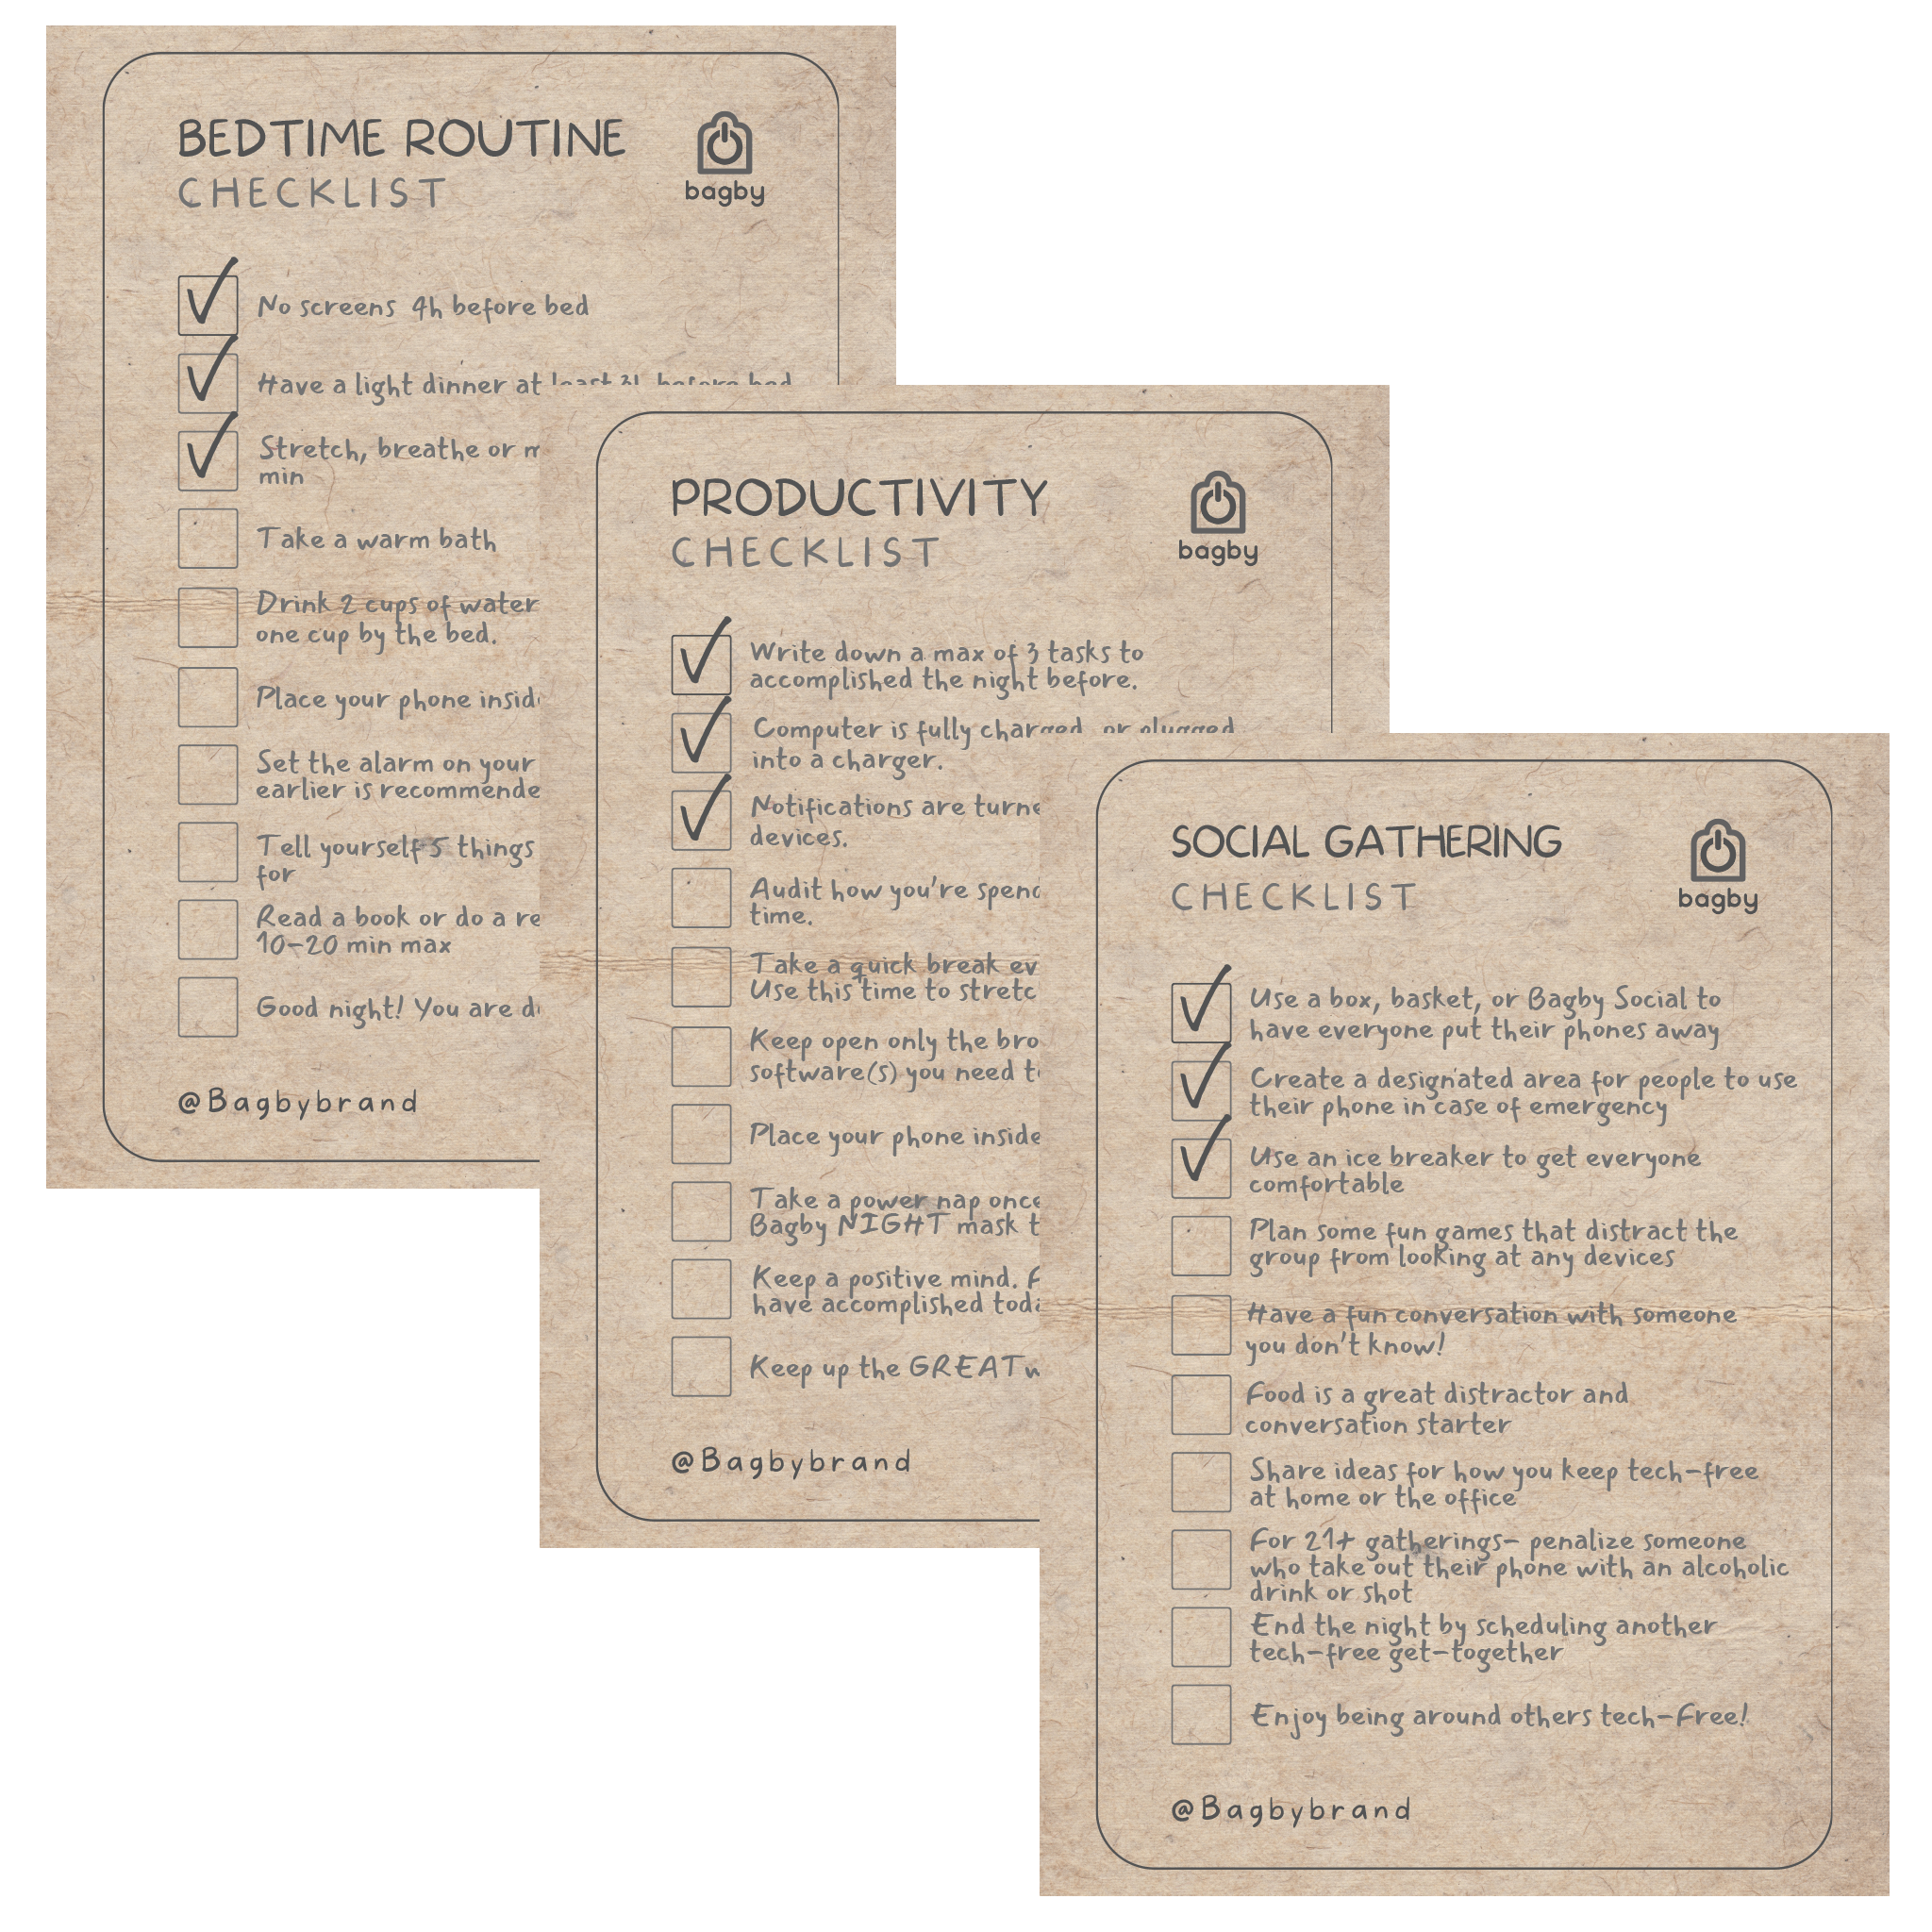 BEDTIME ROUTINE
CHECKLIST
bagby
No screens 4h before bed
Have a light dinner at least 3h before bed
Stretch, breathe or
min
Take a warm bath
Drink 2 cups of water
one cup by the bed.
Place your phone
Set the alarm on your
earlier is
Tell yourself 5 things
for
Read a book or do a
10-20 min max
Good night! You are
@Bagbybrand
PRODUCTIVITY
CHECKLIST
bagby
Write down a max of 3 tasks to
accomplished the night before.
Computer is fully charged, or plugged
into a charger.
Notifications are
devices.
Audit how you're
time.
Take a quick break
Use this time to
Keep open only the
software(s) you need
Place your phone inside
Take a power nap once
Bagby NIGHT mask
Keep a positive mind.
have accomplished
Keep up the GREAT
@Bagbybrand
SOCIAL GATHERING
CHECKLIST
bagby
Use a box, basket, or Bagby Social to
have everyone put their phones away
Create a designated area for people to use
their phone in case of emergency
Use an ice breaker to get everyone
comfortable
Plan some fun games that distract the
group from looking at any devices
Have a fun conversation with someone
you don't know!
Food is a great distractor and
conversation starter
Share ideas for how you keep tech-free
at home or the office
For 21+ gatherings- penalize someone
who take out their phone with an alcoholic
drink or shot
End the night by scheduling another
tech-free get-together
Enjoy being around others tech-Free!
@Bagbybrand